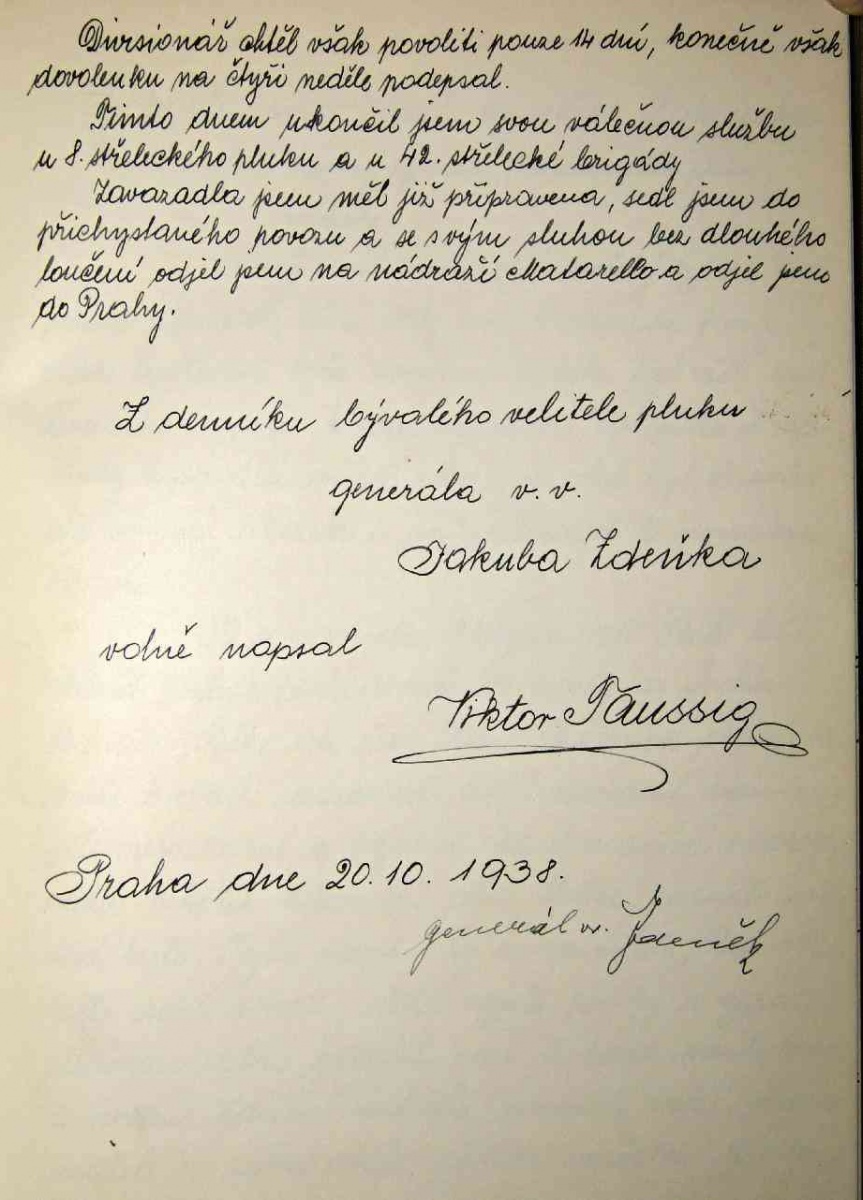 Divisionář chtěl však povoliti pouze 14 dní, konečně však
dovolenku na čtyři neděle podepsal.
Tímto dnem ukončil jsem svou válečnou službu
u 8. střeleckého pluku a u 42. střelecké brigády
Zavazadla jsem měl již připravena, sedl jsem do
přichystaného povozu a se svým sluhou bez dlouhého
loučení odjel jsem na nádraží Matarello a odjel jsem
do Prahy.
Z denníku bývalého velitele pluku
generála v. v.
Jakuba Zdeňka
volně napsal
Viktor Taussig
Praha dne 20. 10. 1938.
generál vv. Zdeněk